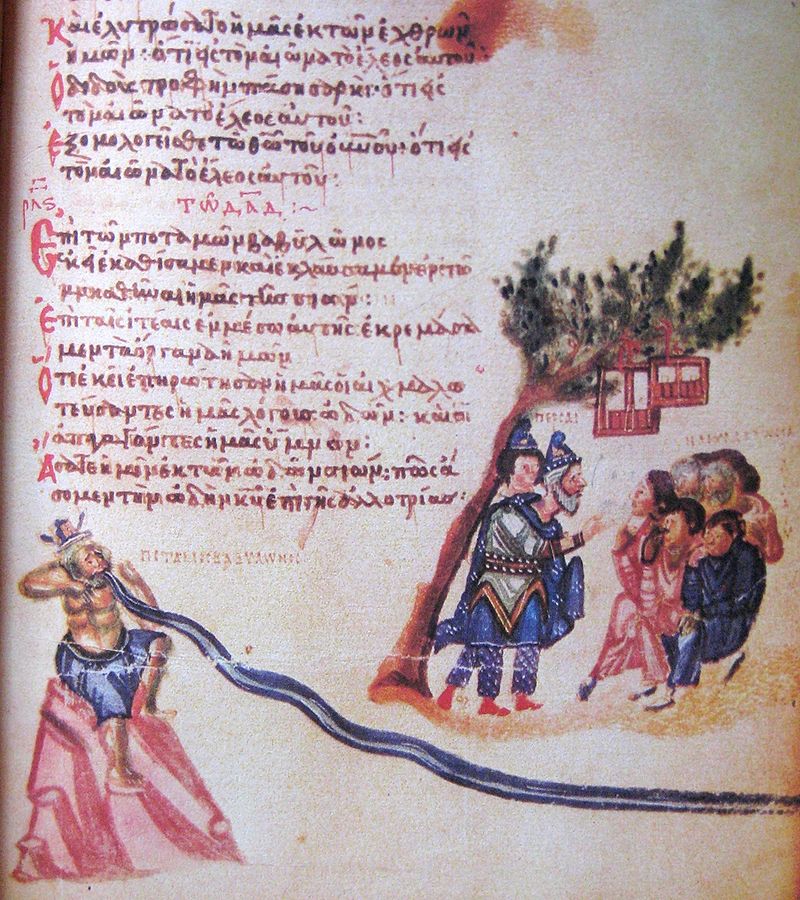 Καὶ ἐλυτρώσατο ἡμᾶς ἐκ τῶν ἐχθρῶν
ἡμῶν· ὅτι εἰς τὸν αἰῶνα τὸ ἔλεος αὐτοῦ·
Ὁ διδοὺς τροφὴν πάση σαρκί· ὅτι εἰς
τὸν αἰῶνα τὸ ἔλεος αὐτοῦ:
Ἐξομολογεῖσθε τῶ θῶ τοῦ οὐνοῦ· ὅτι εἰς
τὸν αἰῶνα τὸ ἔλεος αὐτοῦ·
ρλς
τῶ δᾱδ:~
Ἐπὶ τῶν ποταμῶν βαβυλῶνος
ἐκεῖ ἐκαθίσαμεν καὶ ἐκλαύσαμεν ἐν τῶ
μνησθῆναι ἡμᾶς τῆς σιών:
Ἐπὶ ταῖς ἰτέαις ἐμμέσω αὐτῆς ἐκρεμάσα
μεν τὰ ὄργανα ἡμῶν
Ὅτι ἐκεῖ ἐπηρώτησαν ἡμᾶς οἱ αἰχμαλω
τεύσαντες ἡμᾶς λόγους ὠδῶν: καὶ οἱ
ἀπαγαγόντες ἡμᾶς ὕμνων:
Ἄσατε ἡμῖν ἐκ τῶν ὠδῶν σιών: πῶς ἄ
σομεν τὴν ὠδὴν κῡ ἐπὶ γῆς ἀλλοτρίας:
ΠΕΡΣΑΙ